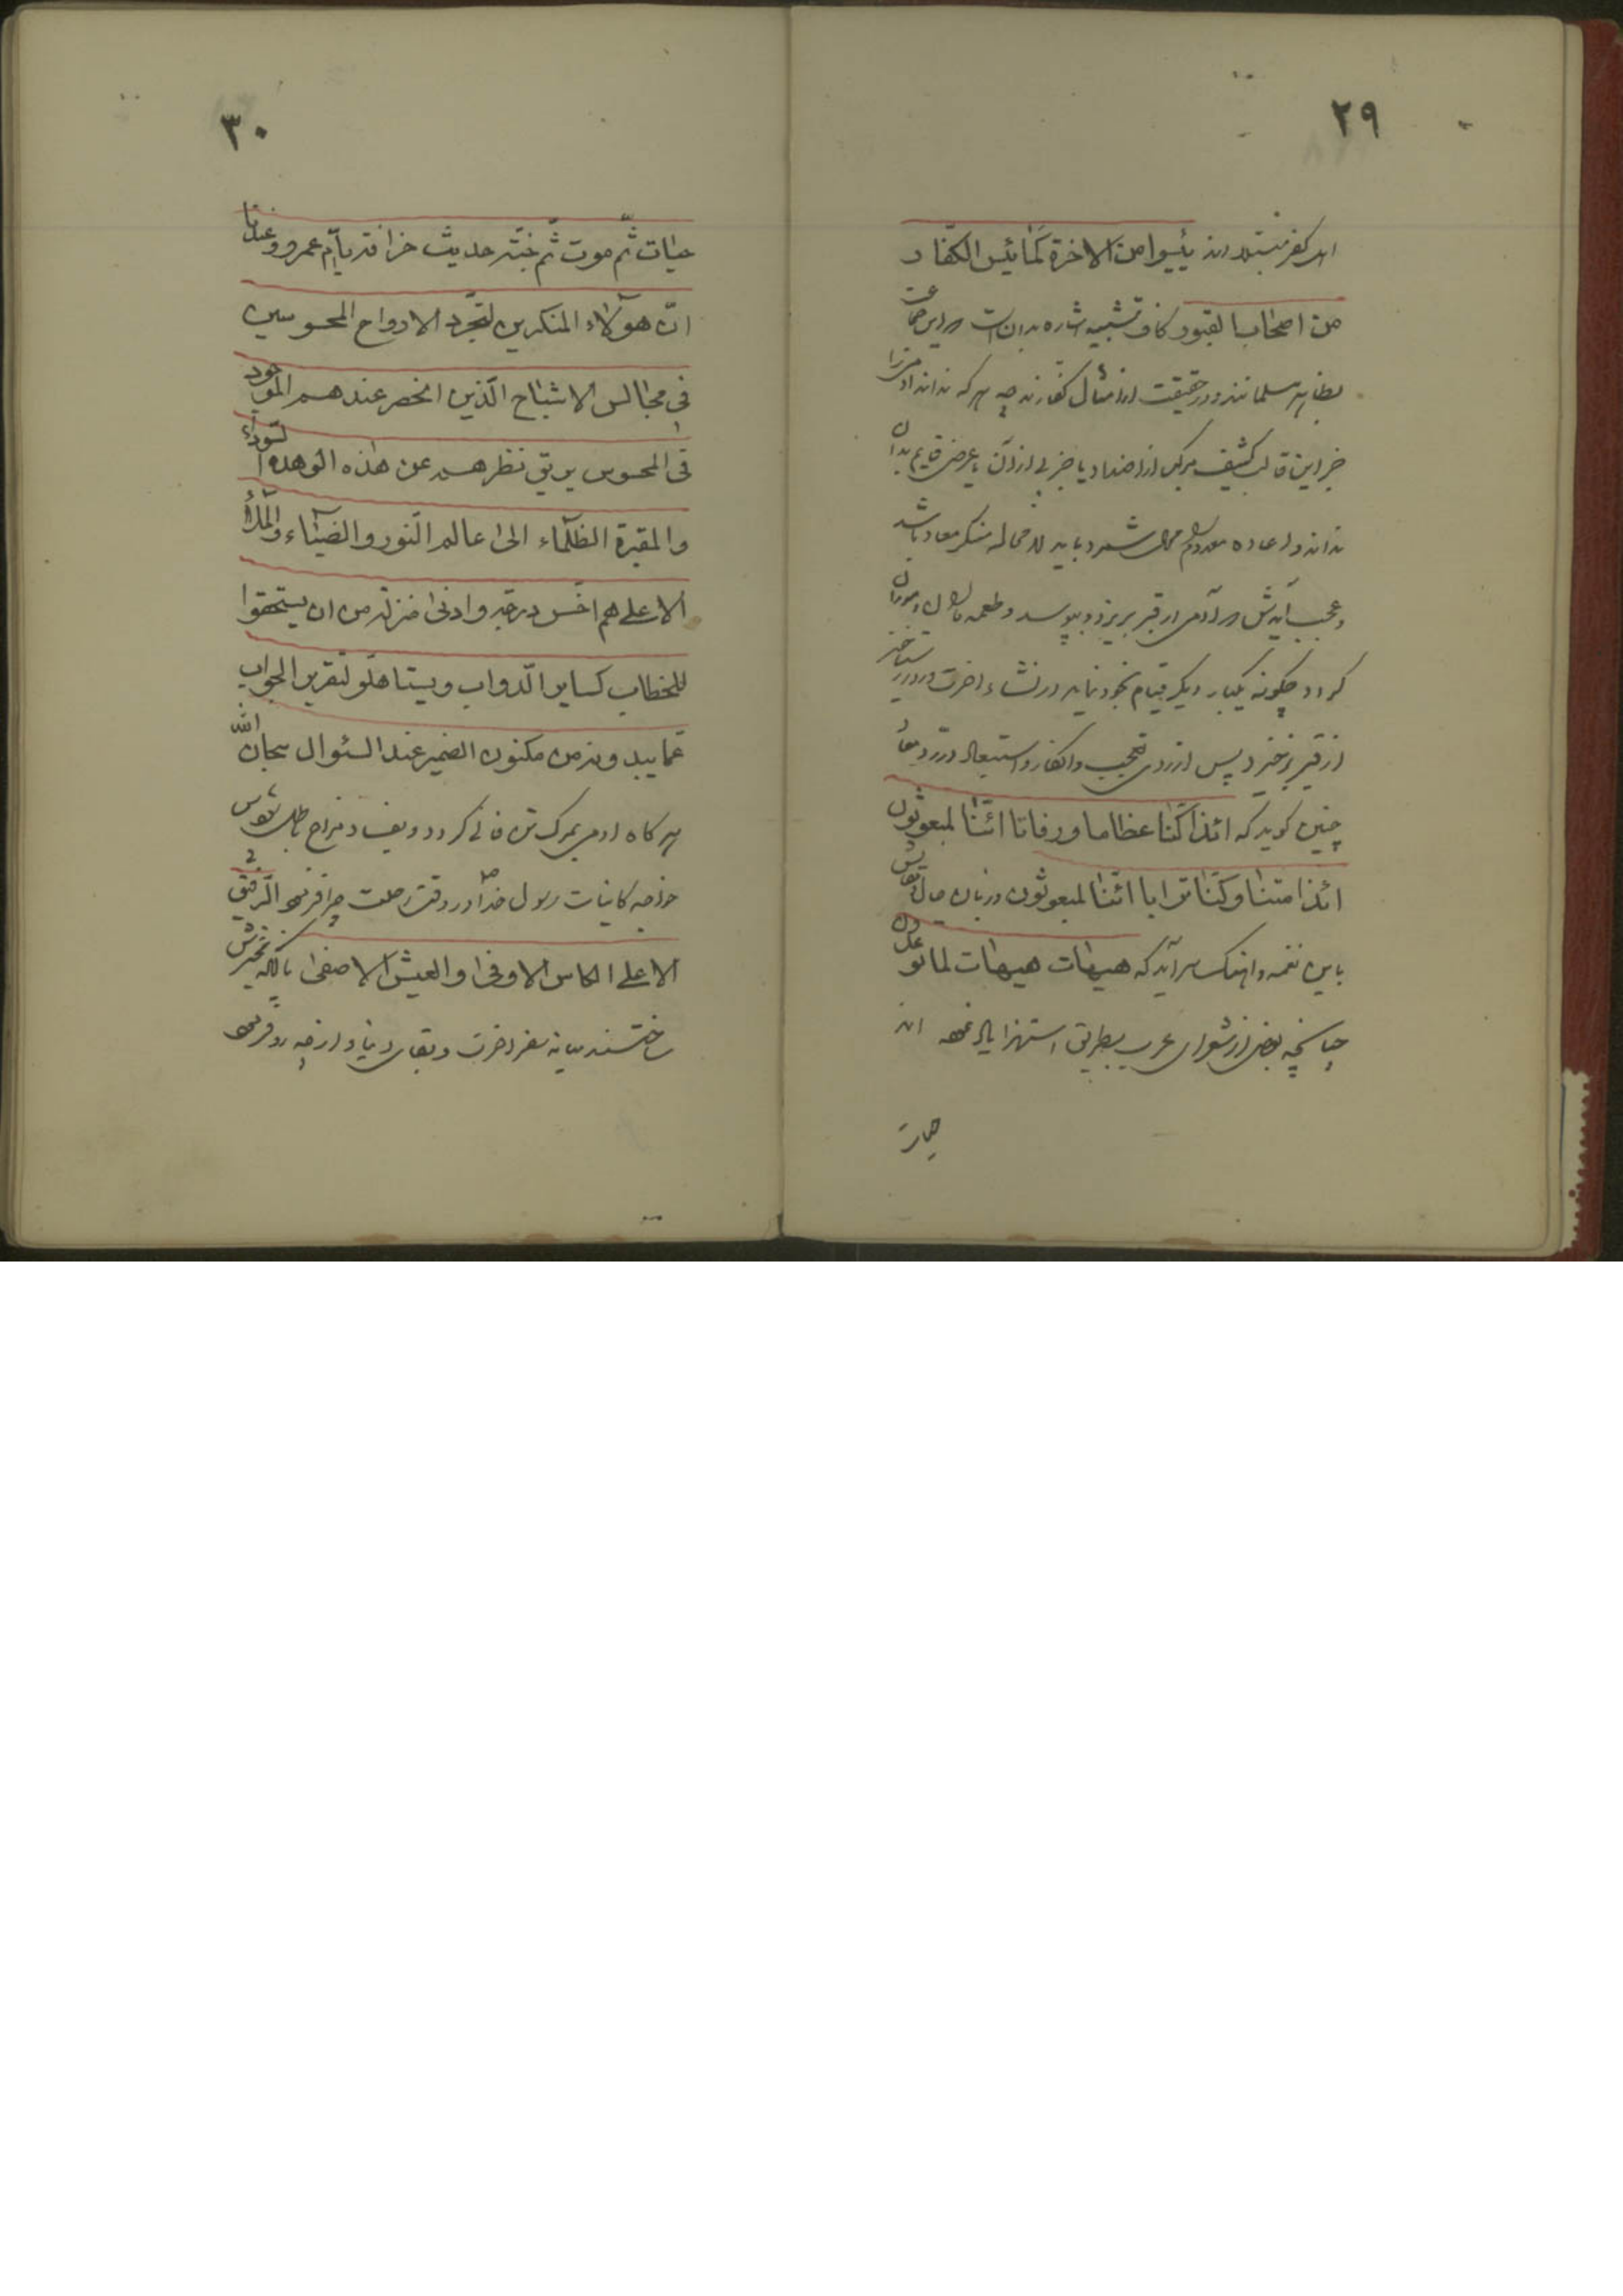 ۲۹
اهل کفر مبتلا اند یئسوا من الاخرة کما یئس الکفار
من اصحاب القبور کاف تشبیه اشاره بدانست که این جماعت
بظاهر مسلمانند و در حقیقت از امثال کفارند چه هر که نداند آدمی را
جز این قالب کثیف مرکب از اضداد یا جزیی از آن یا عرضی قایم بدان
نداند و اعاده معدوم محال شمرد باید لا محاله منکر معاد باشد
و عجب آیدش که آدمی در قبر بریزد و بپوسد و طعمه ماران و موران
گردد چگونه یکبار دیگر قیام بخود نماید در نشاء اخرت و در روز رستاخیز
از قبر برخیزد پس از روی تعجب و انکار و استبعاد
چنین گوید که ائذا کنا عظاما ورفاتا ائنا لمبعوثون
ائذا متنا وکنا ترابا ائنا لمبعوثون و زبان حالش
باین نغمه و اهنگ سرآید که هیهات هیهات لما توعدون
چنانچه بعضی از شعرای عرب بطریق استهزا اند
حیات
۳۰
حیات ثم موت ثم حدیث خرافة یا ام عمرو
ان هولاء المنکرین لتجرد الارواح المحبوسین
فی مجالس الاشباح الذین انحصر عندهم الموجود
فی المحسوس نظرهم عن هذه الوهدة السوداء
والمقبرة الظلماء الی عالم النور والضیاء والملأ
الاعلی هم اخس درجة وادنی منزلة من ان یستحقوا
للخطاب کسایر الدواب ویستاهلو لتقریر الجواب
عما یبدونه من مکنون الضمیر عند السئوال سبحان الله
هر گاه ادمی بمرگ تن فانی گردد و بفساد مزاج باطل شود پس
خواجه کاینات رسول خدا در وقت رحلت چرا فرمود الرفیق
الاعلی الکاس الاوفی والعیش الاصفی بلکه مخیرش
ساختند میانه سفر اخرت و بقای دنیا و از چه رو فرمود